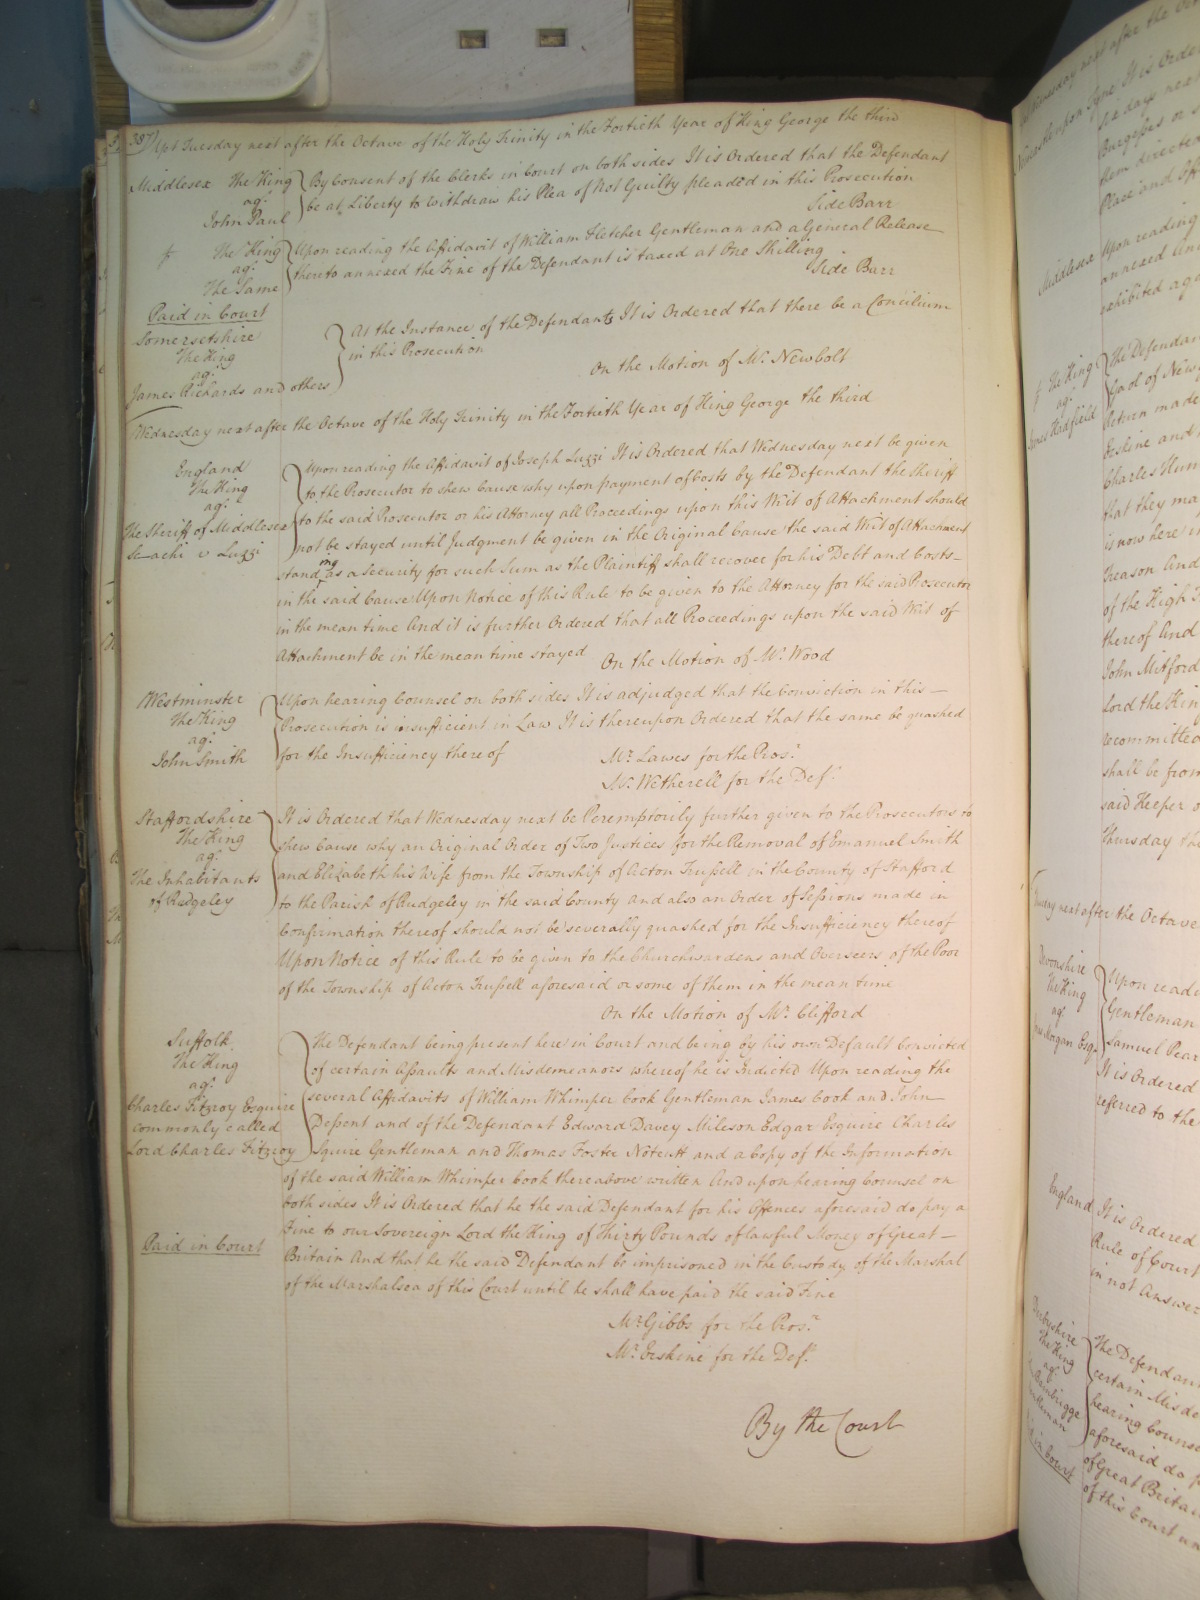 387) Yet Tuesday next after the Octave of the Holy Trinity in the Fortieth Year of King George the third
Middlesex The King
agt
John Paul
By Consent of the Clerks in Court on both sides It is Ordered that the Defendant
be at Liberty to withdraw his Plea of Not Guilty pleaded in this Prosecution
Side Barr
The King
agt
The Same
Upon reading the Affidavit of William Fletcher Gentleman and a General Release
thereto annexed the Fine of the Defendant is taxed at One Shilling
Side Barr
Paid in Court
Somersetshire
The King
agt
James Richards and others
At the Instance of the Defendants It is Ordered that there be a Concilium
in this Prosecution
On the Motion of Mr. Newbolt
Wednesday next after the Octave of the Holy Trinity in the Fortieth Year of King George the third
England
The King
agt
The Sheriff of Middlesex
v Luzzi
Upon reading the Affidavit of Joseph Luzzi It is Ordered that Wednesday next be given
to the Prosecutor to shew Cause why upon payment of Costs by the Defendant the Sheriff
to the said Prosecutor or his Attorney all Proceedings upon this Writ of Attachment should
not be stayed until Judgment be given in the Original Cause the said Writ of Attachment
standing as a Security for such Sum as the Plaintiff shall recover for his Debt and Costs
in the said Cause Upon Notice of this Rule to be given to the Attorney for the said Prosecutor
in the mean time And it is further Ordered that all Proceedings upon the said Writ of
Attachment be in the mean time stayed
On the Motion of Mr. Wood
Westminster
The King
agt
John Smith
Upon hearing Counsel on both sides It is adjudged that the Conviction in this
Prosecution is insufficient in Law It is thereupon Ordered that the same be quashed
for the Insufficiency thereof
Mr. Lawes for the Prosr
Mr. Wetherell for the Deft
Staffordshire
The King
agt
The Inhabitants
of Rudgeley
It is Ordered that Wednesday next be Peremptorily further given to the Prosecutors to
shew Cause why an Original Order of Two Justices for the Removal of Emanuel Smith
and Elizabeth his Wife from the Township of Acton Trussell in the County of Stafford
to the Parish of Rudgeley in the said County and also an Order of Sessions made in
Confirmation thereof should not be severally quashed for the Insufficiency thereof
Upon Notice of this Rule to be given to the Churchwardens and Overseers of the Poor
of the Township of Acton Trussell aforesaid or some of them in the mean time
On the Motion of Mr. Clifford
Suffolk
The King
agt
Charles Fitzroy Esquire
commonly called
Lord Charles Fitzroy
The Defendant being present here in Court and being by his own Default Convicted
of certain Assaults and Misdemeanors whereof he is Indicted Upon reading the
several Affidavits of William Whimper Cook Gentleman James Cook and John
Dessent and of the Defendant Edward Davey Mileson Edgar Esquire Charles
Squire Gentleman and Thomas Foster Notcutt and a Copy of the Information
of the said William Whimper Cook thereabove written And upon hearing Counsel on
both sides It is Ordered that he the said Defendant for his Offences aforesaid do pay a
Fine to our Sovereign Lord the King of Thirty Pounds of lawful Money of Great
Britain And that he the said Defendant be imprisoned in the Custody of the Marshal
of the Marshalsea of this Court until he shall have paid the said Fine
Paid in Court
Mr. Gibbs for the Prosr
Mr. Erskine for the Deft
By the Court
Middlesex
Upon reading
annexed And
exhibited aga
The King
agt
James Hadfield
The Defendan
Gaol of New
Return made
Erskine and
Charles Hum
that they ma
is now here in
Treason And
of the High T
thereof And
John Mitford
Lord the Kin
recommitted
shall be from
said Keeper o
Thursday the
next after the Octave
Devonshire
The King
agt
Upon readi
Gentleman
Samuel Pear
It is Ordered
referred to the
England
It is Ordered
Rule of Court
in not Answer
Derbyshire
The King
agt
The Defendan
certain Misde
hearing Couns
aforesaid do p
of Great Britai
of this Court un